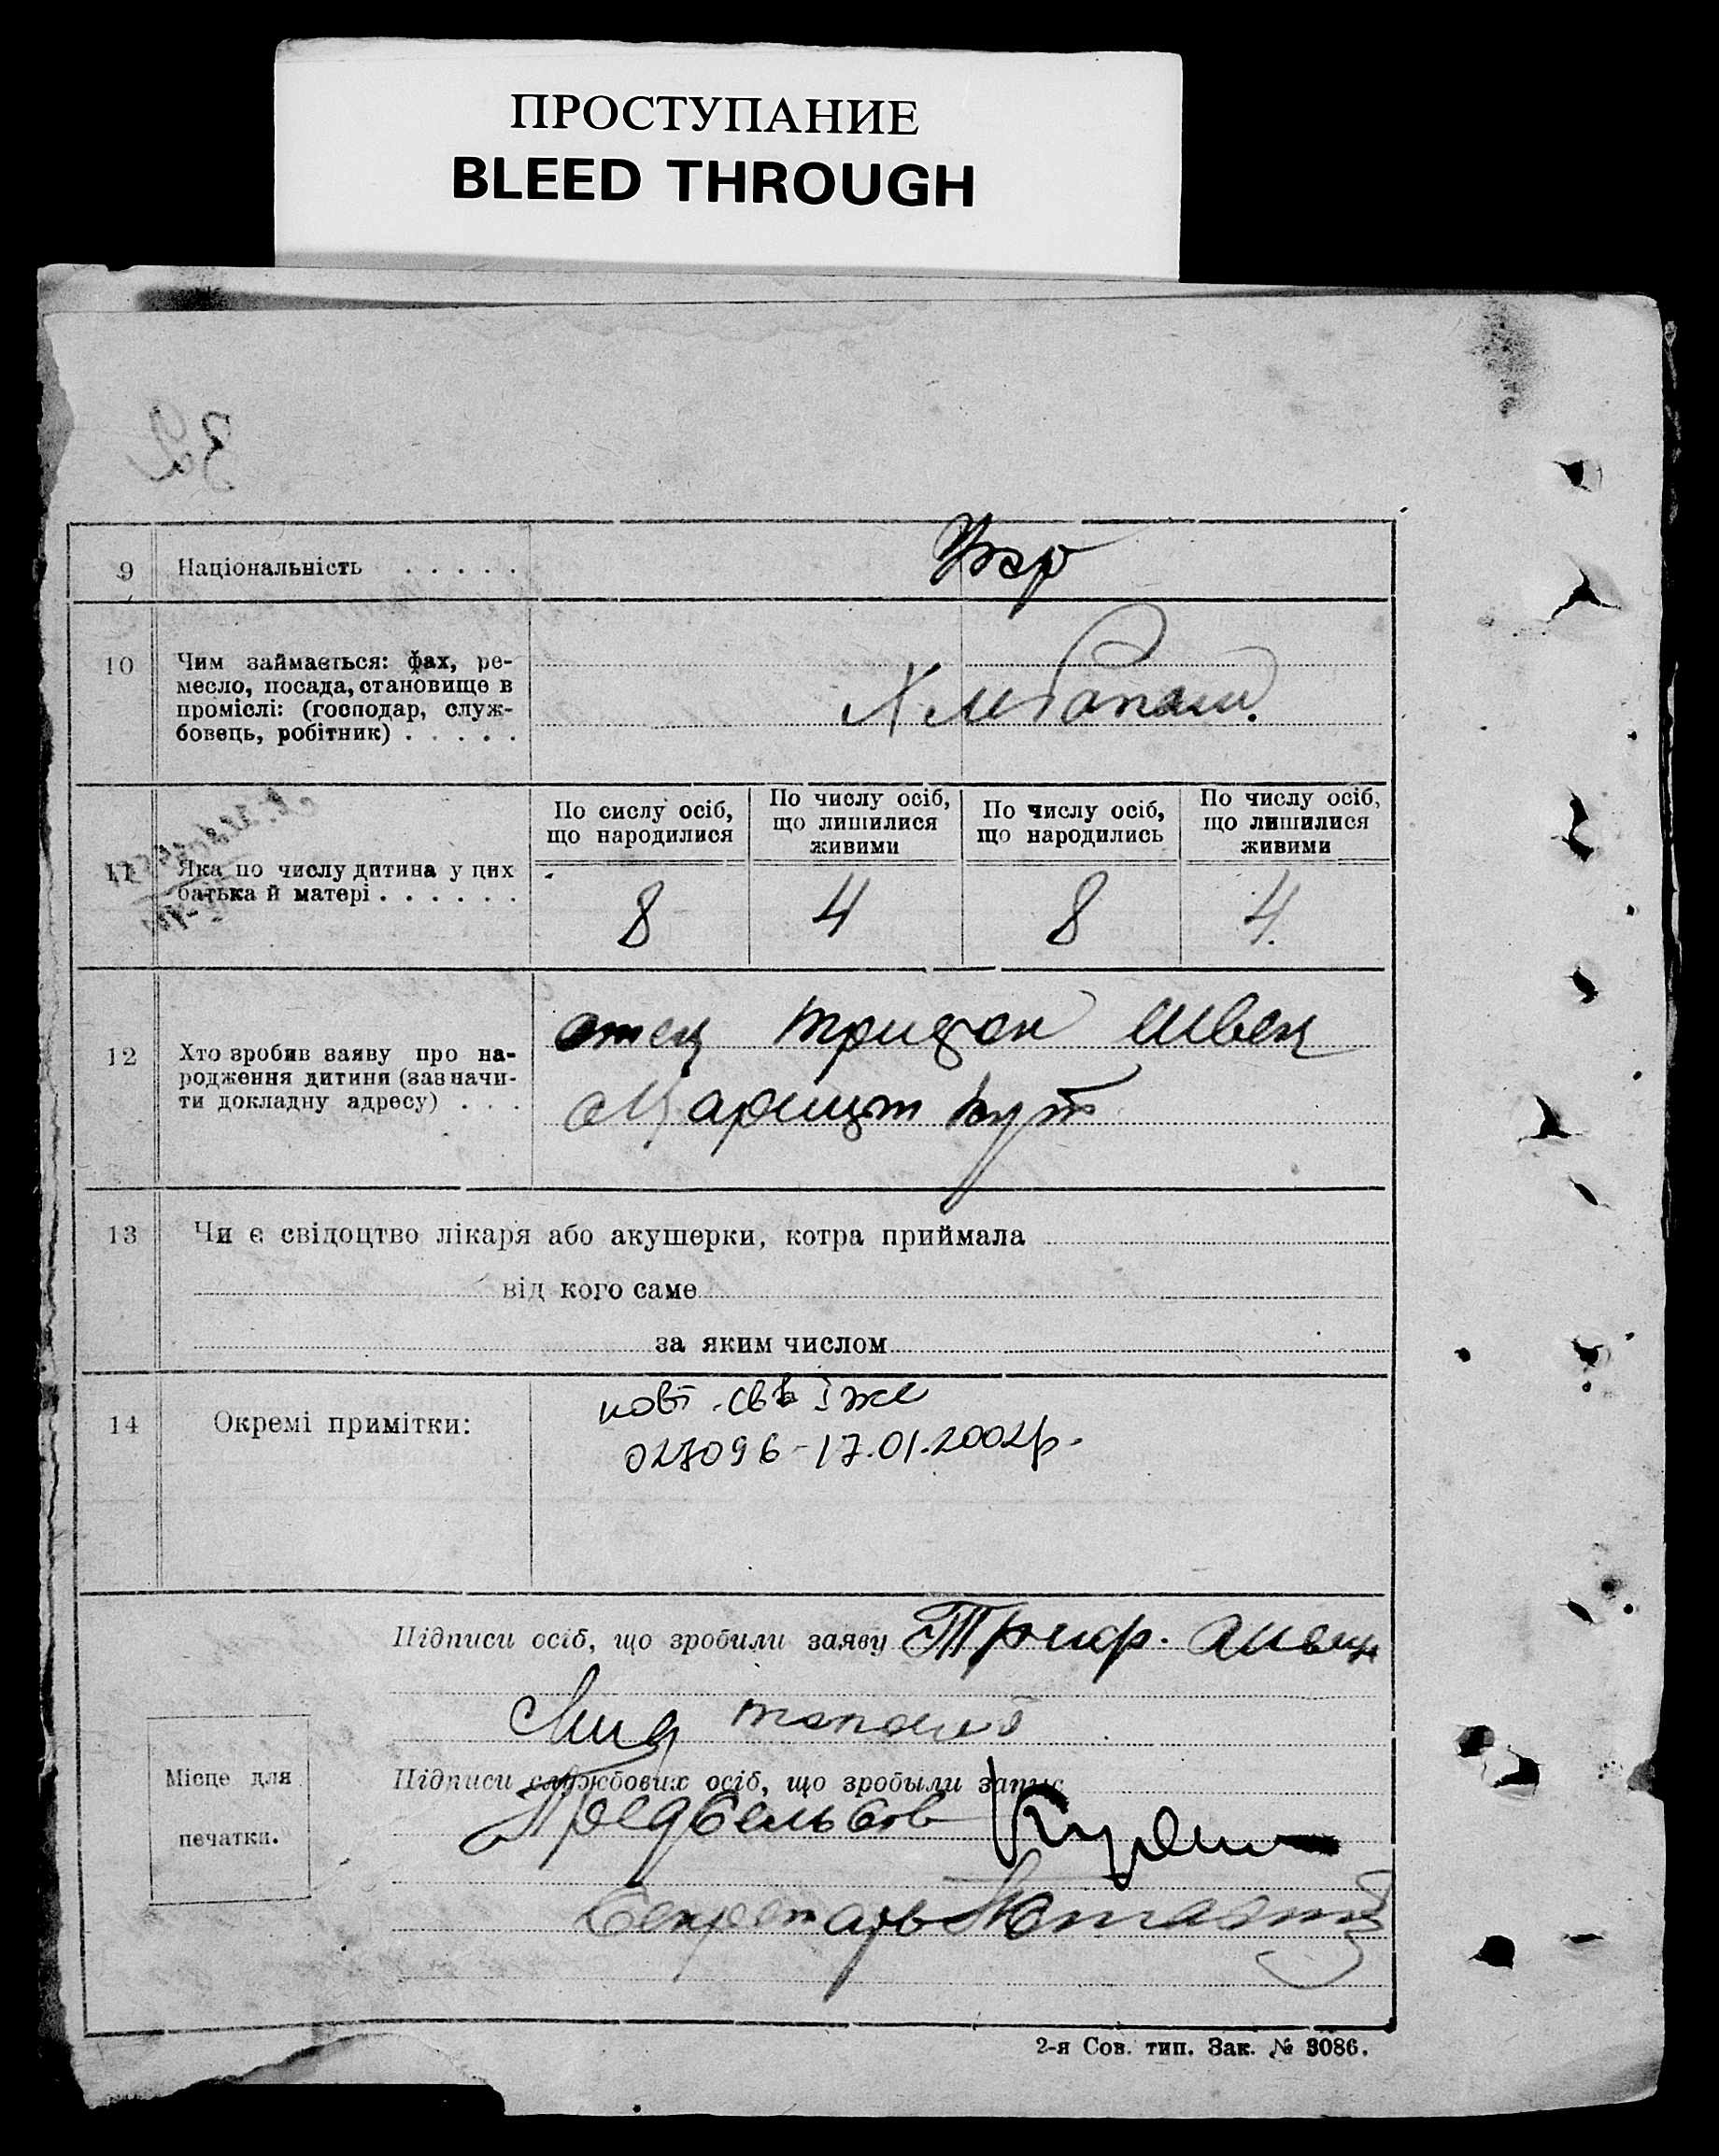 ПРОСТУПАНИЕ
BLEED THROUGH
9 Національність . . . . . Укр
10 Чим займається: фах, ре-
месло, посада, становище в
проміслі: (господар, служ-
бовець, робітник) . . . . . Хлебопаш.
По сислу осіб, що народилися
По числу осіб, що лишилися живими
По числу осіб, що народились
По числу осіб, що лишилися живими
11 Яка по числу дитина у цих
батька й матері . . . . . . 8 4 8 4.
12 Хто зробив заяву про на-
родження дитини (зазначи-
ти докладну адресу) . . .
отец Трифон Швец
кут
13 Чи є свідоцтво лікаря або акушерки, котра приймала
від кого саме
за яким числом
14 Окремі примітки:
027096-17.01.2002р.
Підписи осіб, що зробили заяву Триф. Швец
Підписи службових осіб, що зробыли запис
Місце для
печатки.
Секретарь
2-я Сов. тип. Зак. № 3086.